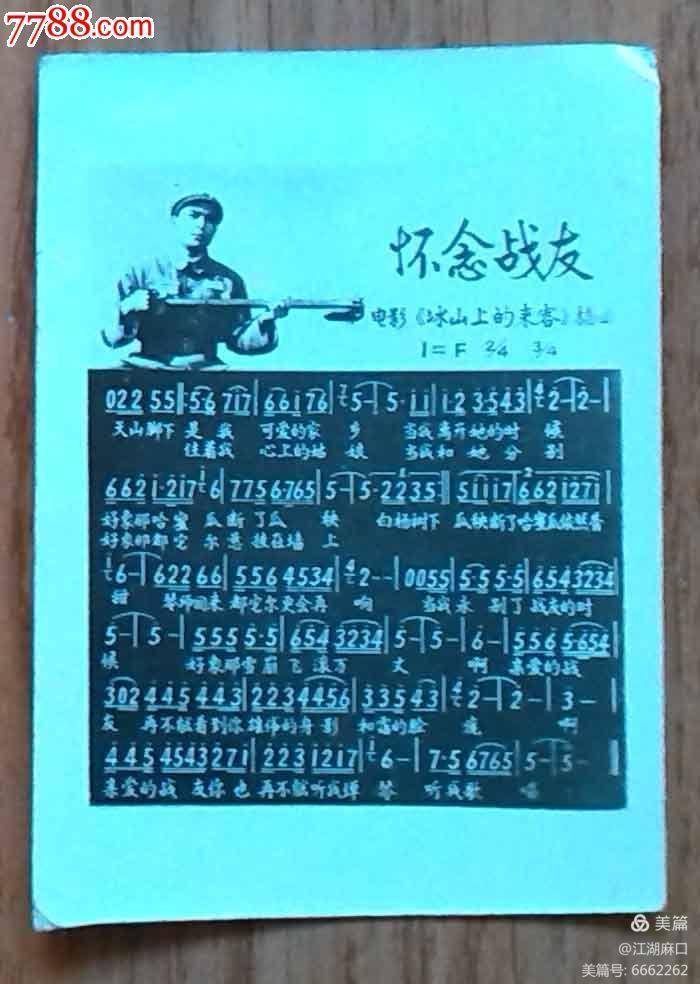 7788.com
怀念战友
电影《冰山上的来客》插曲
1=F 2/4 3/4
022 55 5·6 71̇7 661̇76 5- 5·1̇1̇ 1̇2 3543 2-2-
天山脚下 是我 可爱的家 乡 当我离开她的时 候
住着我 心上的姑 娘 当我和她分 别
662 1̇·21̇7 6 7756·765 5- 5·2235 51̇1̇1̇7 6621̇271̇
好象那哈蜜 瓜断了瓜 秧 白杨树下 瓜秧断了哈蜜瓜依然香
好象那都它 尔悬挂在墙 上
6- 62266 5564534 2-- 0055 5·55·5 6543234
甜 琴师回来 都它尔更会再 响 当我永 别了战友的时
5- 5- 5555·5 6543234 5- 5- 6- 5565·654
候 好象那雪崩飞滚万 丈 啊 亲爱的战
302 445443 2234456 33543 2- 2- 3-
友 再不能看到你雄伟的身影 和蔼的脸 庞 啊
4454543271̇ 2231̇21̇7 6- 7·56765 5- 5-
亲爱的战 友你也 再不能听我弹 琴 听我歌 唱
美篇
@江湖麻口
美篇号: 6662262